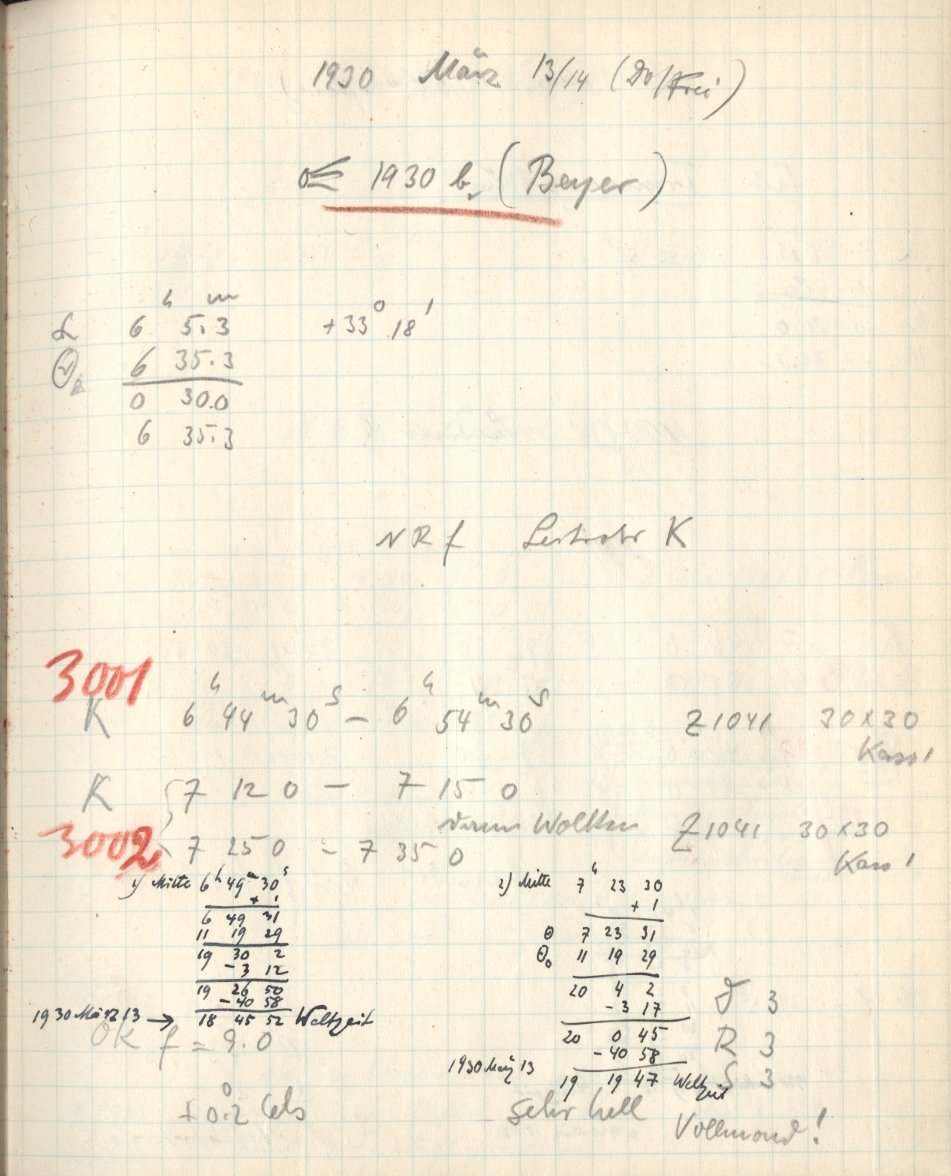 1930 März 13/14 (Do/Frei)
☄ 1930 b, (Beyer)
h m
α 6 5.3 +33° 18'
Θ 6 35.3
0 30.0
6 35.3
NRf Leitrohr K
3001
K 6h 44m 30s – 6h 54m 30s Z1041 30x30
Kass 1
K 7 12 0 – 7 15 0
dann Wolken Z1041 30x30
3002 7 25 0 – 7 35 0 Kass 1
1) Mitte 6h 49m 30s
+ 1
6 49 31
11 19 29
19 30 2
-3 12
19 26 50
-40 58
1930 März 13 → 18 45 52 Weltzeit
2) Mitte 7h 23 30
+ 1
Θ 7 23 31
Θ₀ 11 19 29
20 4 2
-3 17
20 0 45
-40 58
1930 März 13 19 19 47 Weltzeit
OK f = 9.0
+0.2° Cels
J 3
R 3
S 3
sehr hell
Vollmond!